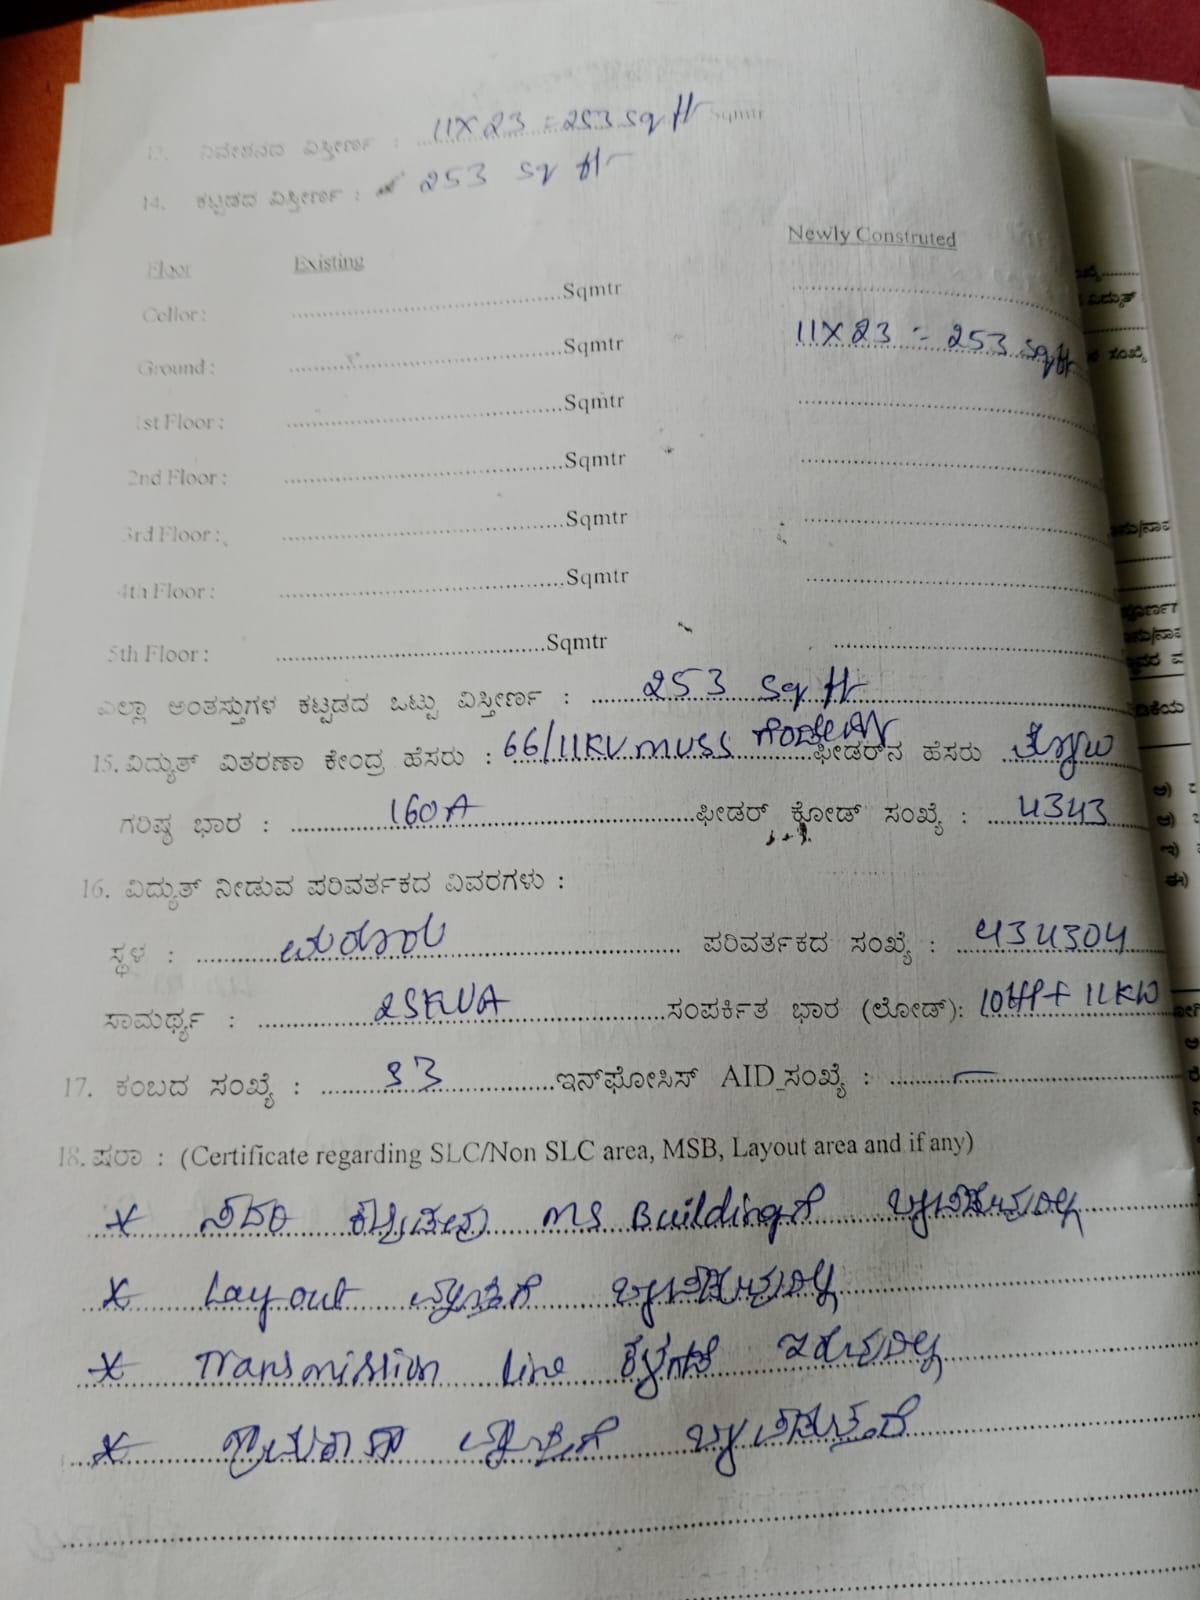 13. ನಿವೇಶನದ ವಿಸ್ತೀರ್ಣ : 11X23 = 253 sq ft Sqmtr
14. ಕಟ್ಟಡದ ವಿಸ್ತೀರ್ಣ : 253 sq ft
Floor Existing Newly Construted
Cellor : Sqmtr
Ground : Sqmtr 11X23 = 253 sq ft
1st Floor : Sqmtr
2nd Floor : Sqmtr
3rd Floor : Sqmtr
4th Floor : Sqmtr
5th Floor : Sqmtr
ಎಲ್ಲಾ ಅಂತಸ್ತುಗಳ ಕಟ್ಟಡದ ಒಟ್ಟು ವಿಸ್ತೀರ್ಣ : 253 sq ft
15. ವಿದ್ಯುತ್ ವಿತರಣಾ ಕೇಂದ್ರ ಹೆಸರು : 66/11KV MUSS ಫೀಡರ್‌ನ ಹೆಸರು
ಗರಿಷ್ಠ ಭಾರ : 160A ಫೀಡರ್ ಕೋಡ್ ಸಂಖ್ಯೆ : 4343
16. ವಿದ್ಯುತ್ ನೀಡುವ ಪರಿವರ್ತಕದ ವಿವರಗಳು :
ಸ್ಥಳ : ಪರಿವರ್ತಕದ ಸಂಖ್ಯೆ : 434304
ಸಾಮರ್ಥ್ಯ : 25KVA ಸಂಪರ್ಕಿತ ಭಾರ (ಲೋಡ್): 10HP + 11KW
17. ಕಂಬದ ಸಂಖ್ಯೆ : 93 ಇನ್‌ಫೋಸಿಸ್ AID ಸಂಖ್ಯೆ : —
18. ಷರಾ : (Certificate regarding SLC/Non SLC area, MSB, Layout area and if any)
* ಸದರಿ ಕಟ್ಟಡವು MS Buildingಗೆ ಬರುವುದಿಲ್ಲ
* Layout ವ್ಯಾಪ್ತಿಗೆ ಬರುವುದಿಲ್ಲ
* Transmission line ಕೆಳಗಡೆ ಇರುವುದಿಲ್ಲ
* ವ್ಯಾಪ್ತಿಗೆ ಬರುತ್ತದೆ